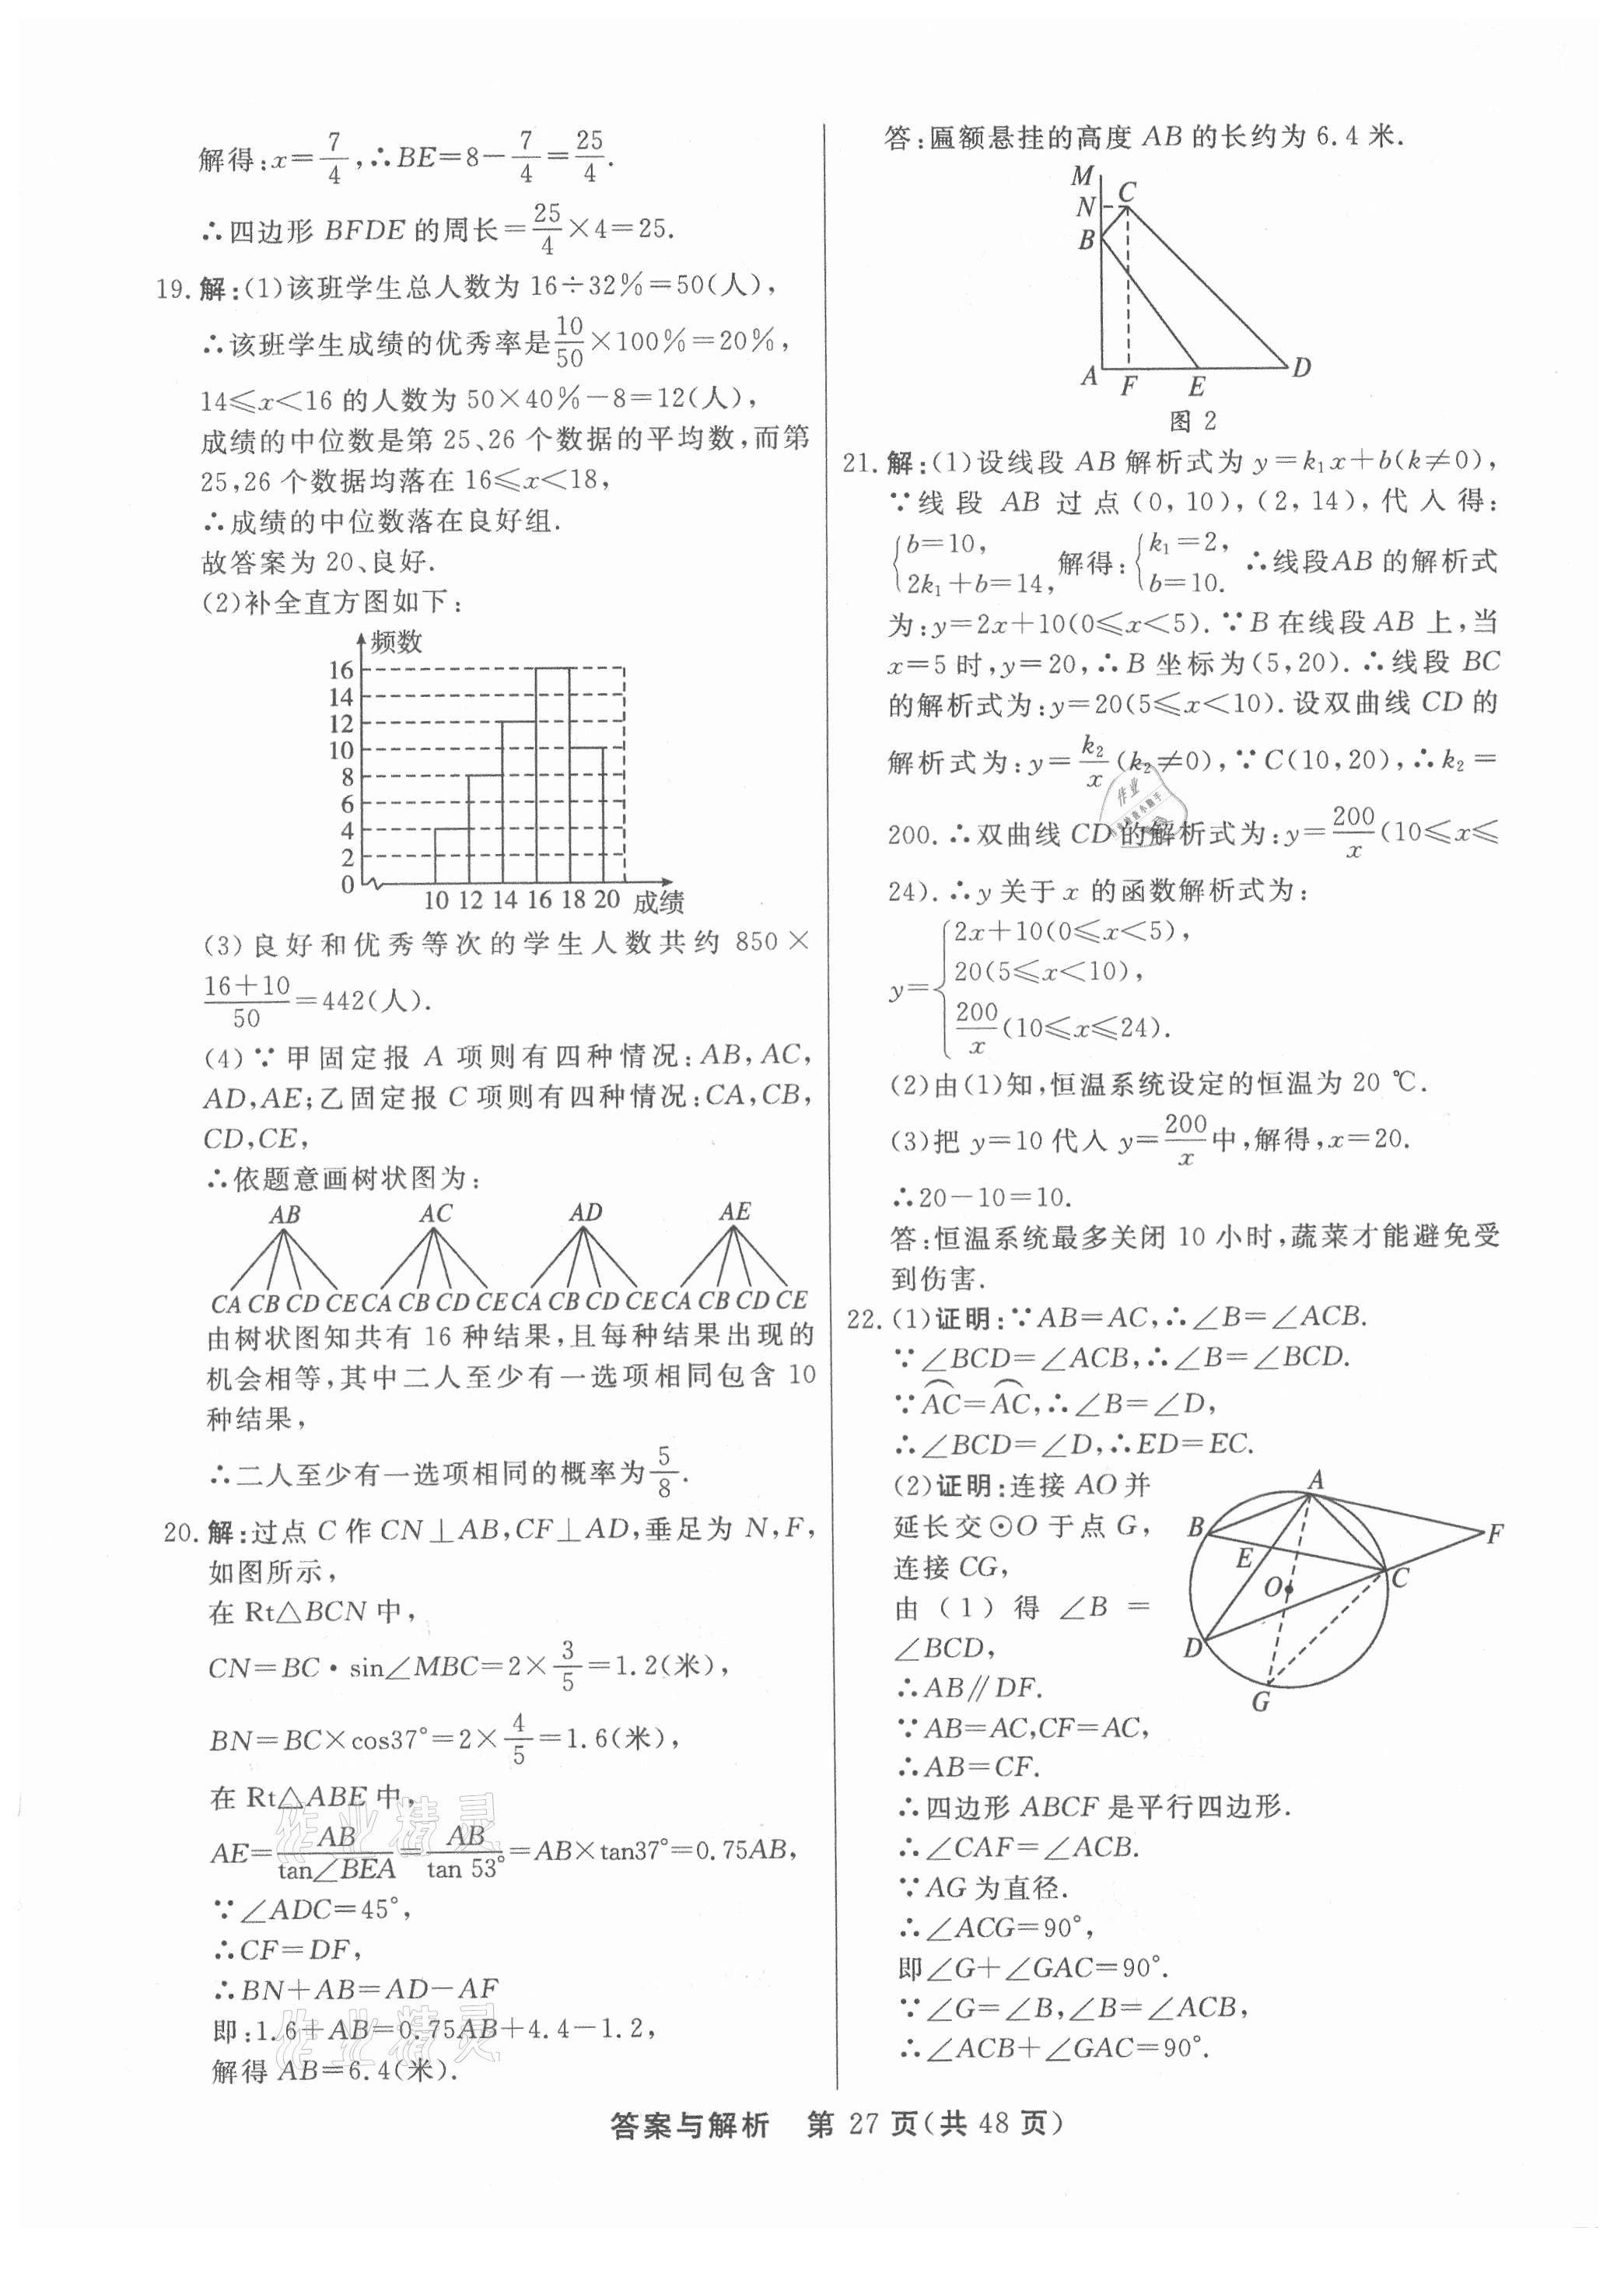 解得:x=7/4,∴BE=8-7/4=25/4.
∴四边形 BFDE 的周长=25/4×4=25.
19.解:(1)该班学生总人数为 16÷32%=50(人),
∴该班学生成绩的优秀率是10/50×100%=20%,
14≤x<16 的人数为 50×40%-8=12(人),
成绩的中位数是第 25、26 个数据的平均数,而第
25,26 个数据均落在 16≤x<18,
∴成绩的中位数落在良好组.
故答案为 20、良好.
(2)补全直方图如下:
频数
16
14
12
10
8
6
4
2
0
10 12 14 16 18 20 成绩
(3)良好和优秀等次的学生人数共约 850×
(16+10)/50=442(人).
(4)∵甲固定报 A 项则有四种情况:AB,AC,
AD,AE;乙固定报 C 项则有四种情况:CA,CB,
CD,CE,
∴依题意画树状图为:
AB AC AD AE
CA CB CD CE CA CB CD CE CA CB CD CE CA CB CD CE
由树状图知共有 16 种结果,且每种结果出现的
机会相等,其中二人至少有一选项相同包含 10
种结果,
∴二人至少有一选项相同的概率为5/8.
20.解:过点 C 作 CN⊥AB,CF⊥AD,垂足为 N,F,
如图所示,
在 Rt△BCN 中,
CN=BC·sin∠MBC=2×3/5=1.2(米),
BN=BC×cos37°=2×4/5=1.6(米),
在 Rt△ABE 中,
AE=AB/tan∠BEA=AB/tan 53°=AB×tan37°=0.75AB,
∵∠ADC=45°,
∴CF=DF,
∴BN+AB=AD-AF
即:1.6+AB=0.75AB+4.4-1.2,
解得 AB=6.4(米).
答:匾额悬挂的高度 AB 的长约为 6.4 米.
M
N C
B
A F E D
图 2
21.解:(1)设线段 AB 解析式为 y=k₁x+b(k≠0),
∵线段 AB 过点(0,10),(2,14),代入得:
{b=10, 2k₁+b=14, 解得:{k₁=2, b=10. ∴线段AB 的解析式
为:y=2x+10(0≤x<5).∵B 在线段 AB 上,当
x=5 时,y=20,∴B 坐标为(5,20).∴线段 BC
的解析式为:y=20(5≤x<10).设双曲线 CD 的
解析式为:y=k₂/x(k₂≠0),∵C(10,20),∴k₂=
200.∴双曲线 CD 的解析式为:y=200/x(10≤x≤
24).∴y 关于 x 的函数解析式为:
y={2x+10(0≤x<5),
20(5≤x<10),
200/x(10≤x≤24).
(2)由(1)知,恒温系统设定的恒温为 20 ℃.
(3)把 y=10 代入 y=200/x中,解得,x=20.
∴20-10=10.
答:恒温系统最多关闭 10 小时,蔬菜才能避免受
到伤害.
22.(1)证明:∵AB=AC,∴∠B=∠ACB.
∵∠BCD=∠ACB,∴∠B=∠BCD.
∵⌒AC=⌒AC,∴∠B=∠D,
∴∠BCD=∠D,∴ED=EC.
(2)证明:连接 AO 并
延长交⊙O 于点 G,
连接 CG,
由(1)得∠B=
∠BCD,
∴AB∥DF.
∵AB=AC,CF=AC,
∴AB=CF.
∴四边形 ABCF 是平行四边形.
∴∠CAF=∠ACB.
∵AG 为直径.
∴∠ACG=90°,
即∠G+∠GAC=90°.
∵∠G=∠B,∠B=∠ACB,
∴∠ACB+∠GAC=90°.
A
B F
E
C
O
D
G
作业精灵
作业精灵
答案与解析 第 27 页(共 48 页)